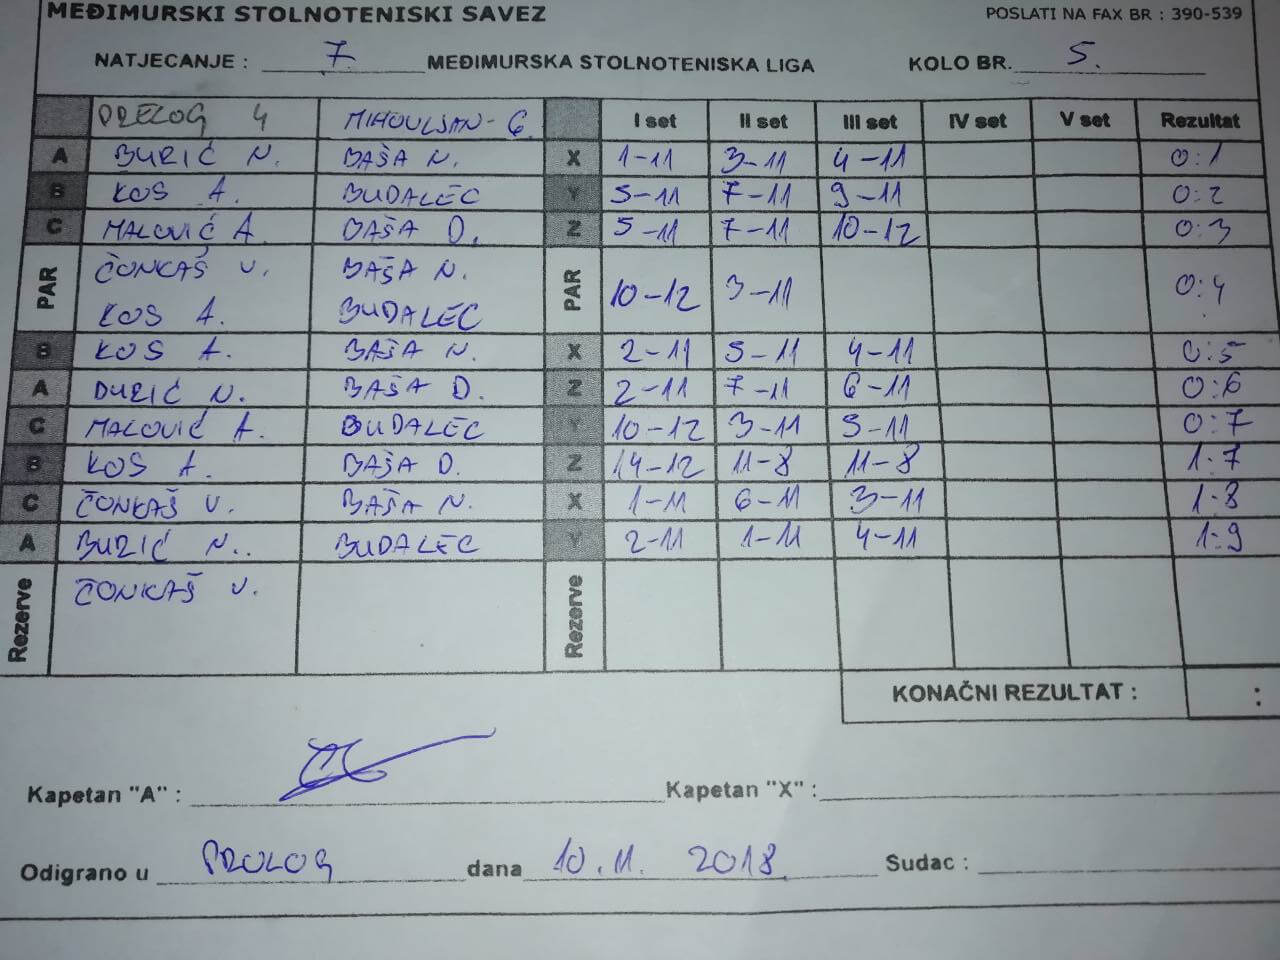 MEĐIMURSKI STOLNOTENISKI SAVEZ POSLATI NA FAX BR : 390-539
NATJECANJE : 7. MEĐIMURSKA STOLNOTENISKA LIGA KOLO BR. 5.
PRELOG 4 MIHOVLJAN-6 I set II set III set IV set V set Rezultat
A BURIĆ N. BAŠA N. X 1-11 3-11 4-11 0:1
B KOS A. BUDALEC Y 5-11 7-11 9-11 0:2
C MALOVIĆ A. BAŠA D. Z 5-11 7-11 10-12 0:3
PAR ČONKAŠ V. BAŠA N. PAR 10-12 3-11 0:4
KOS A. BUDALEC
B KOS A. BAŠA N. X 2-11 5-11 4-11 0:5
A DURIĆ N. BAŠA D. Z 2-11 7-11 6-11 0:6
C MALOVIĆ A. BUDALEC Y 10-12 3-11 5-11 0:7
B KOS A. BAŠA D. Z 14-12 11-8 11-8 1:7
C ČONKAŠ V. BAŠA N. X 1-11 6-11 3-11 1:8
A BURIĆ N.. BUDALEC Y 2-11 1-11 4-11 1:9
Rezerve ČONKAŠ V. Rezerve
KONAČNI REZULTAT : :
Kapetan "A" : Kapetan "X" :
Odigrano u PRELOG dana 10.11. 2018. Sudac :